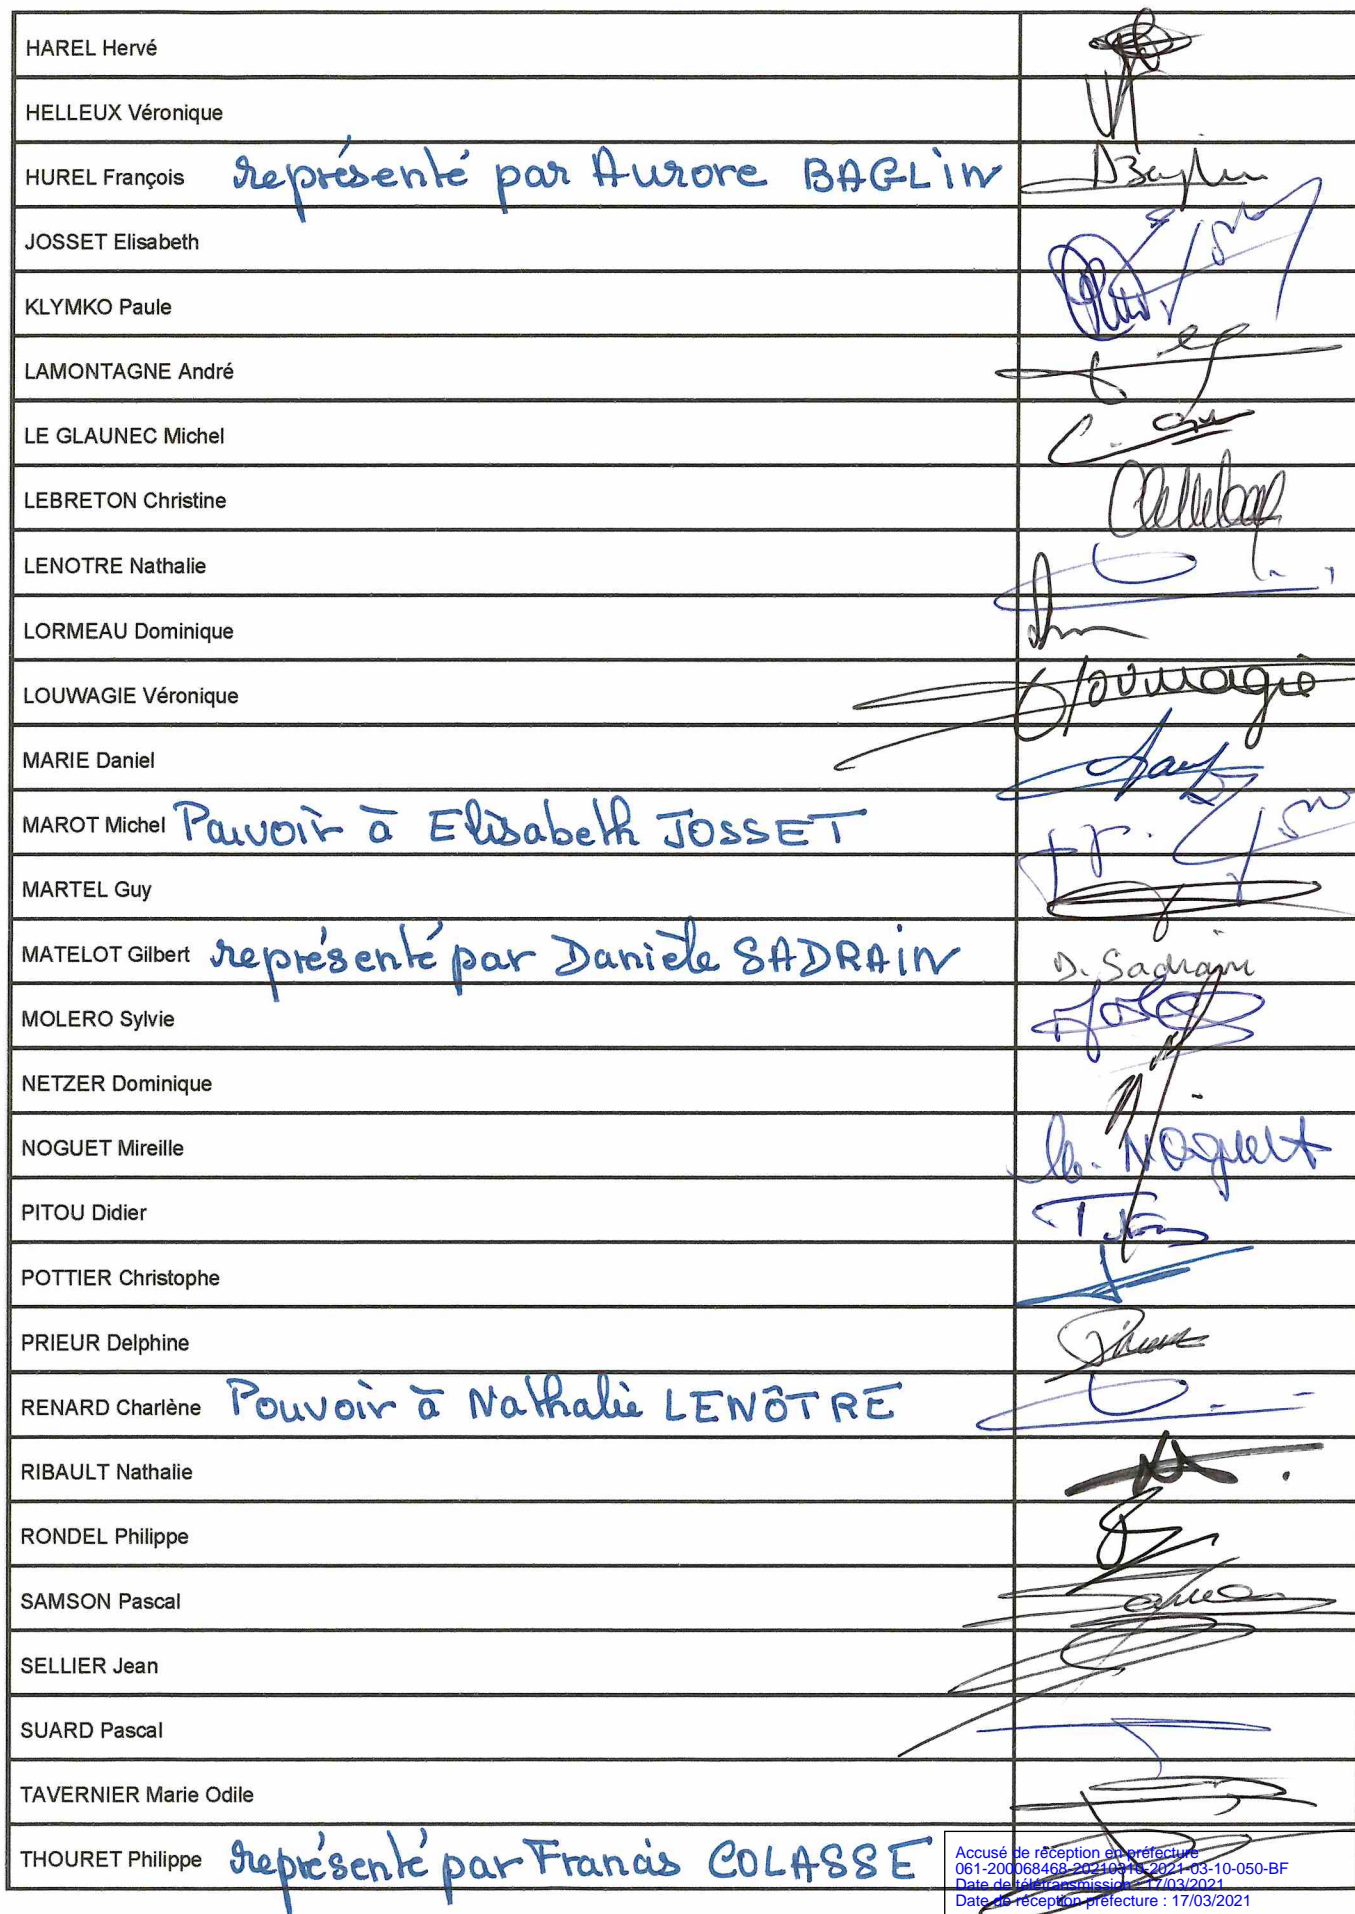 HAREL Hervé
HELLEUX Véronique
HUREL François représenté par Aurore BAGLIN
JOSSET Elisabeth
KLYMKO Paule
LAMONTAGNE André
LE GLAUNEC Michel
LEBRETON Christine
LENOTRE Nathalie
LORMEAU Dominique
LOUWAGIE Véronique
MARIE Daniel
MAROT Michel Pouvoir à Elisabeth JOSSET
MARTEL Guy
MATELOT Gilbert représenté par Danièle SADRAIN D. Sadrain
MOLERO Sylvie
NETZER Dominique
NOGUET Mireille M. NOGUET
PITOU Didier
POTTIER Christophe
PRIEUR Delphine
RENARD Charlène Pouvoir à Nathalie LENÔTRE
RIBAULT Nathalie
RONDEL Philippe
SAMSON Pascal
SELLIER Jean
SUARD Pascal
TAVERNIER Marie Odile
THOURET Philippe représenté par Francis COLASSE
Accusé de réception en préfecture
061-200068468-20210310-2021-03-10-050-BF
Date de télétransmission : 17/03/2021
Date de réception préfecture : 17/03/2021